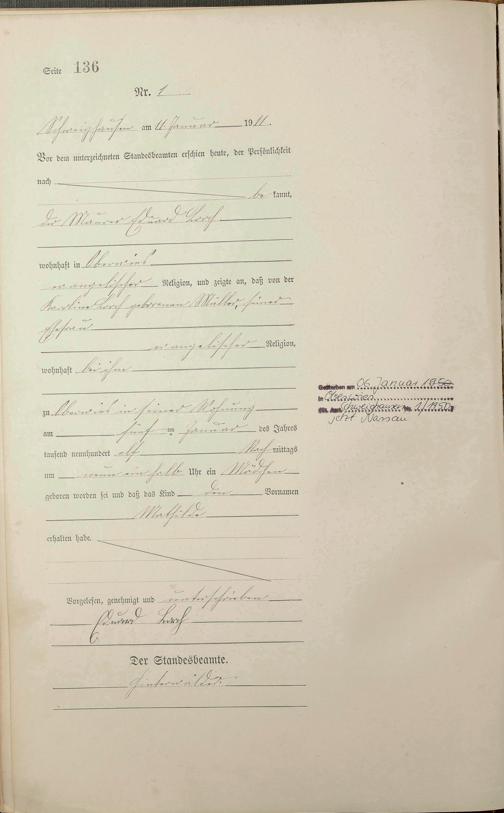 Seite 136
Nr. 1
Schweighausen am 11 Januar 1911.
Vor dem unterzeichneten Standesbeamten erschien heute, der Persönlichkeit
nach
be kannt,
der Maurer Eduard Lorch
wohnhaft in Oberwies
evangelischer Religion, und zeigte an, daß von der
Karoline Lorch geborenen Müller, seiner
Ehefrau
evangelischer Religion,
wohnhaft bei ihm
zu Oberwies in seiner Wohnung
am fünften Januar des Jahres
tausend neunhundert elf Nach mittags
um neun ein halb Uhr ein Mädchen
geboren worden sei und daß das Kind den Vornamen
Mathilde
erhalten habe.
Vorgelesen, genehmigt und unterschrieben
Eduard Lorch
Der Standesbeamte.
Hinterwälder
Gestorben am 06. Januar
in Oberwies
Nr. 1/1950
jetzt Nassau